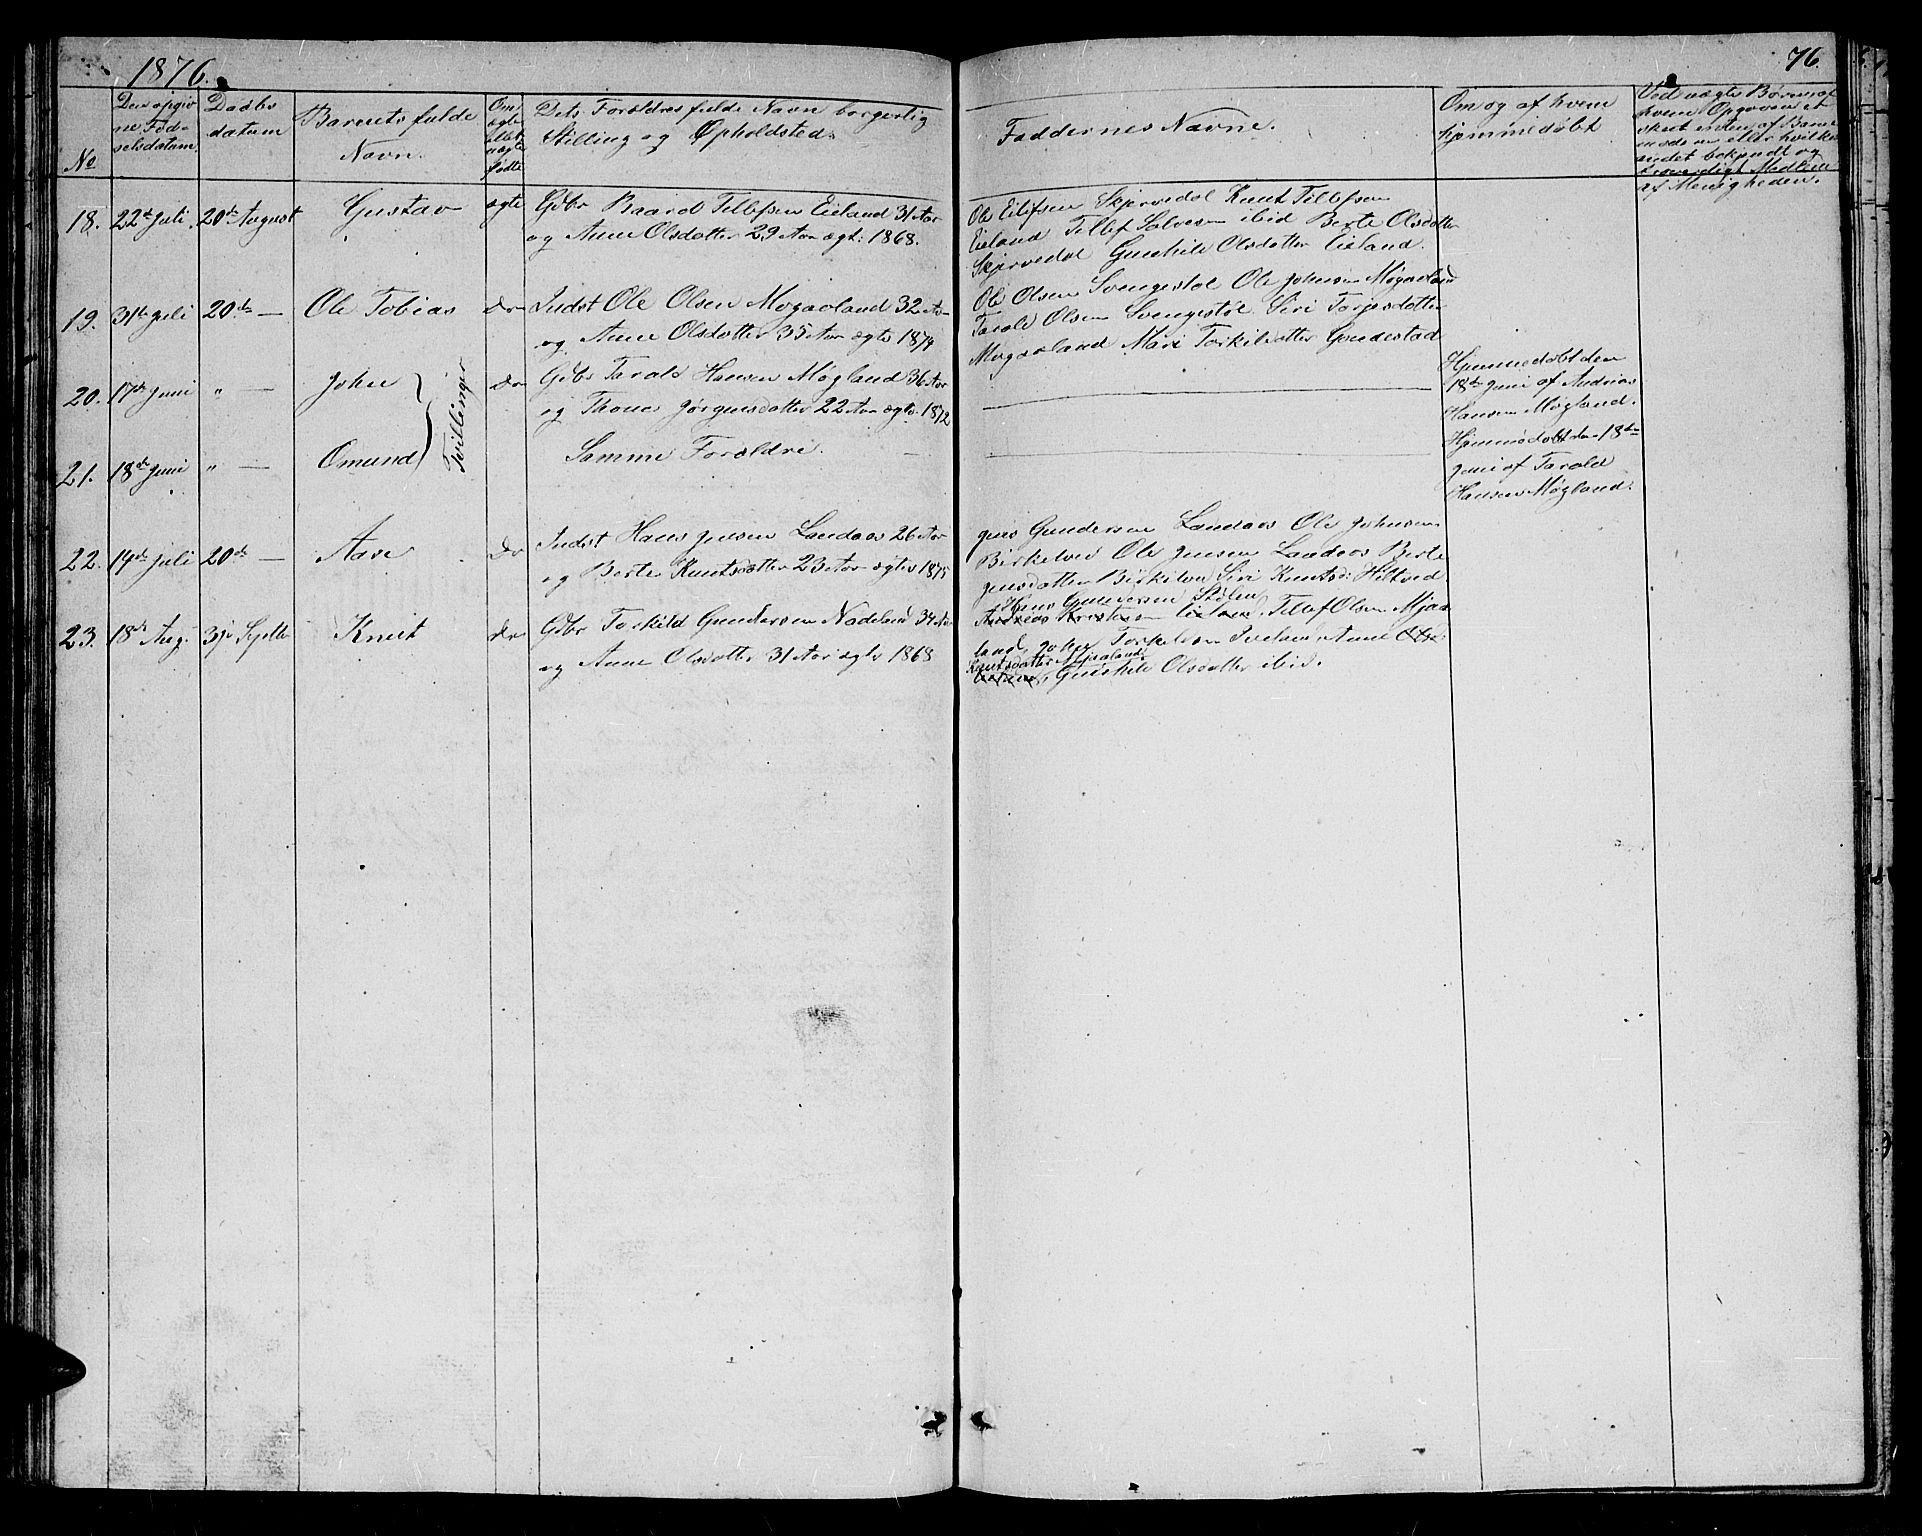 1876.
76.
No
Den opgiv
ne Fød-
selsdatum
Daabs
datum
Barnets fulde
Navn.
Om
ægte
eller
uægte
fødte
Dets Forældres fulde Navn borgerlig
Stilling og Opholdsted.
Faddernes Navne.
Om og af hvem
hjemmedøbt
Ved uægte Børn af
hvem Opgaven er
skeet enten af Barne
moderen eller hvilket
andet bekjendt og
troværdigt Medlem
af Menigheden.
18. 22de Juli 20de August Gustav ægte Gdbr Baard Tellefsen Eieland 31 Aar
og Anne Olsdatter 29 Aar ægt: 1868.
Ole Eilefsen Skjervedal Knut Tellefsen
Eieland Tellef Salvesen ibid Berte Olsdatter
Skjervedal Gunhild Olsdatter Eieland.
19. 31te Juli 20de — Ole Tobias Do Indst Ole Olsen Mogaoland 32 Aar
og Anne Olsdatter 35 Aar ægte 1874
Ole Olsen Svengestøl Ole Johnsen Mogaoland
Tarald Olsen Svengestøl Siri Torjesdatter
Mogaoland Mari Torkildatter Gundestad
20. 17de Juni " — John Do Gdbr Tarald Hansen Møgland 36 Aar
og Thone Jørgensdatter 22 Aar ægte 1872
Hjemmedøbt den
18de Juni af Andreas
Hansen Møgland.
Tvillinger
21. 18de Juni " — Omund Samme Forældre. —
Hjemmedøbt den 18de
Juni af Tarald
Hansen Møgland.
22. 14de Juli 20de — Aase Do Indst Hans Jensen Landaas 26 Aar
og Berte Knutsdatter 23 Aar ægtev 1875
Jens Gundersen Landaas Ole Johnsen
Birkelien Ole Jensen Landaas Berte
Jensdatter Birkelien Siri Knutsd: Hiltved
23. 18de Aug. 3die Septbr Knut Do Gdbr Torkild Gundersen Nadeland 34 Aar
og Anne Olsdatter 31 Aar ægtv 1868
Hans Gundersen Stølen
Andreas Kristensen Eieland, Tellef Olsen Mjaa
land, Torkelsen Anne Ols
Knutsdatter Mjaaland
Gunhild Olsdatter ibid.